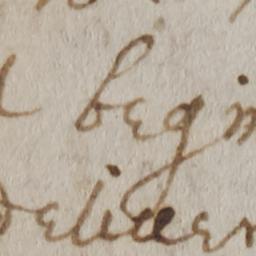 begin
deliver